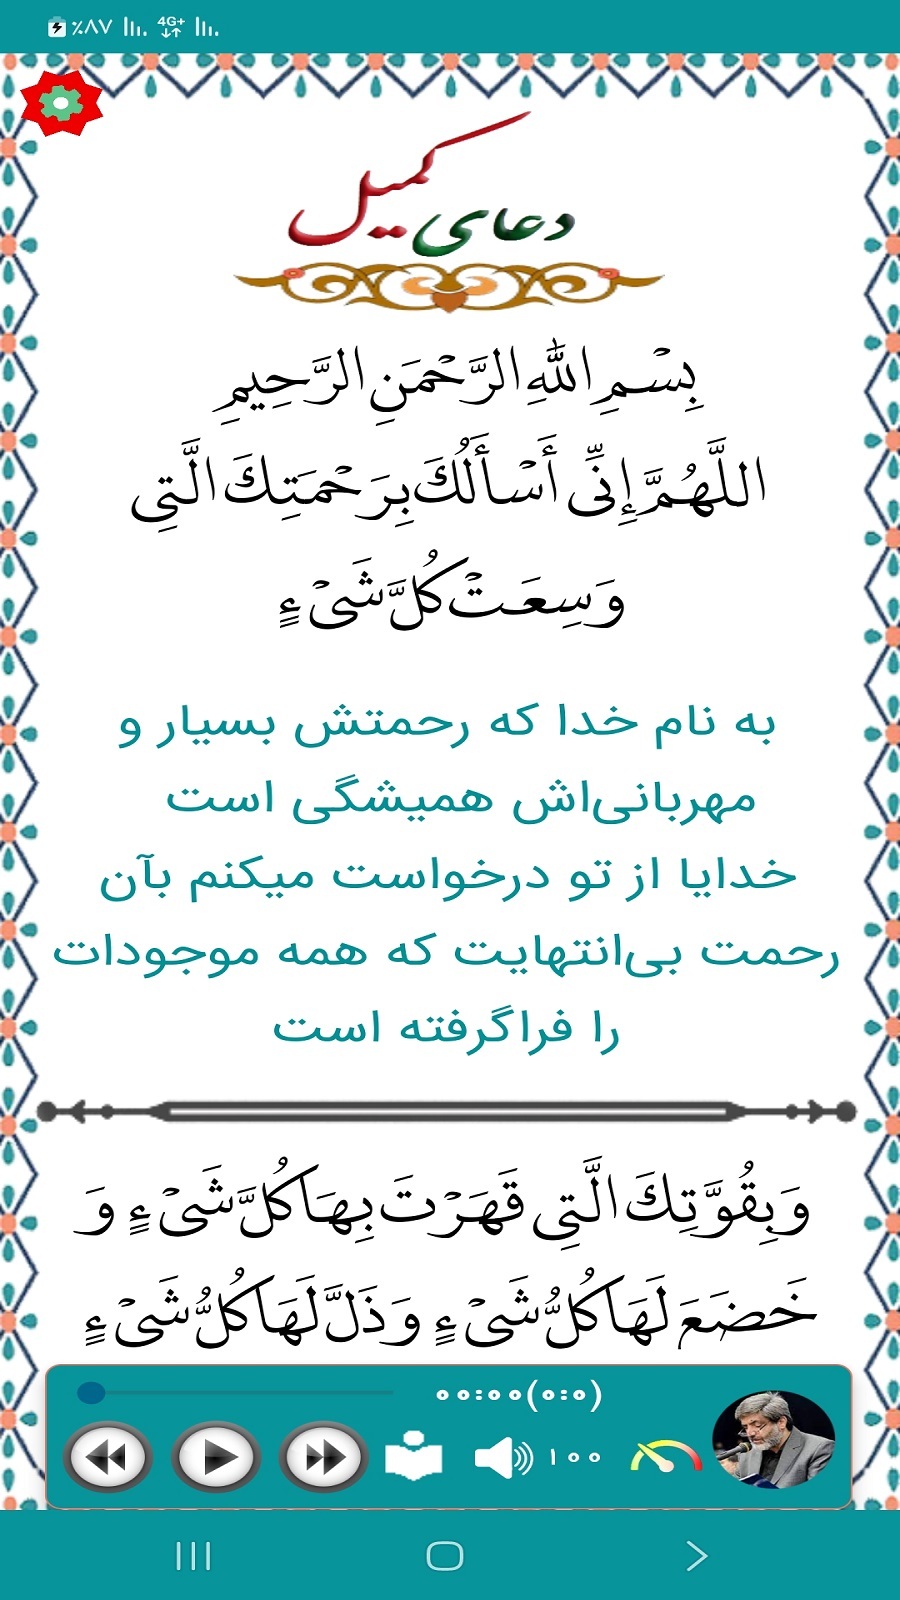 ٪۸۷ 4G+
دعای کمیل
بِسْمِ اللّٰهِ الرَّحْمَنِ الرَّحِيمِ
اللَّهُمَّ إِنِّي أَسْأَلُكَ بِرَحْمَتِكَ الَّتِي
وَسِعَتْ كُلَّ شَيْءٍ
به نام خدا که رحمتش بسیار و
مهربانی‌اش همیشگی است
خدایا از تو درخواست میکنم بآن
رحمت بی‌انتهایت که همه موجودات
را فراگرفته است
وَ بِقُوَّتِكَ الَّتِي قَهَرْتَ بِهَا كُلَّ شَيْءٍ وَ
خَضَعَ لَهَا كُلُّ شَيْءٍ وَ ذَلَّ لَهَا كُلُّ شَيْءٍ
۰۰:۰۰(۰:۰)
۱۰۰